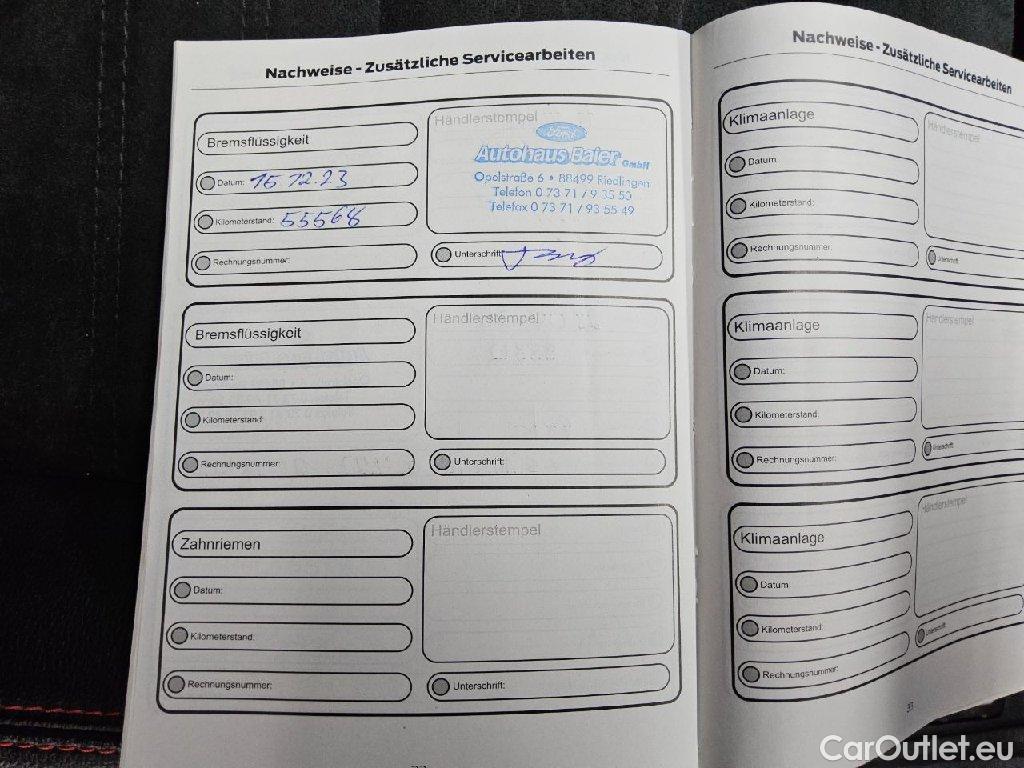 Nachweise - Zusätzliche Servicearbeiten
Bremsflüssigkeit
Datum: 15.12.23
Kilometerstand: 55568
Rechnungsnummer:
Händlerstempel
Ford
Autohaus Baier GmbH
Opelstraße 6 • 88499 Riedlingen
Telefon 0 73 71 / 9 35 50
Telefax 0 73 71 / 93 55 49
Unterschrift:
Bremsflüssigkeit
Datum:
Kilometerstand:
Rechnungsnummer:
Händlerstempel
Unterschrift:
Zahnriemen
Datum:
Kilometerstand:
Rechnungsnummer:
Händlerstempel
Unterschrift:
Nachweise - Zusätzliche Servicearbeiten
Klimaanlage
Datum:
Kilometerstand:
Rechnungsnummer:
Händlerstempel
Unterschrift:
Klimaanlage
Datum:
Kilometerstand:
Rechnungsnummer:
Händlerstempel
Unterschrift:
Klimaanlage
Datum:
Kilometerstand:
Rechnungsnummer:
Händlerstempel
Unterschrift:
CarOutlet.eu